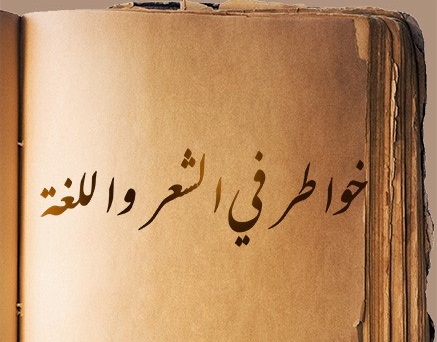 خواطر في الشعر واللغة